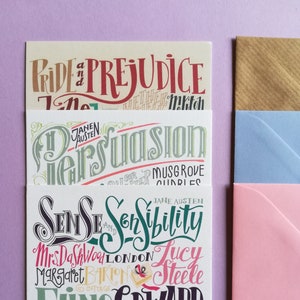 PRIDE and PREJUDICE
JANE
JANE AUSTEN
Persuasion
MUSGROVE
CHARLES
JANE AUSTEN
SENSE and SENSIBILITY
Mrs Dashwood
LONDON
Lucy
Steele
Margaret
BARTON
EDWARD